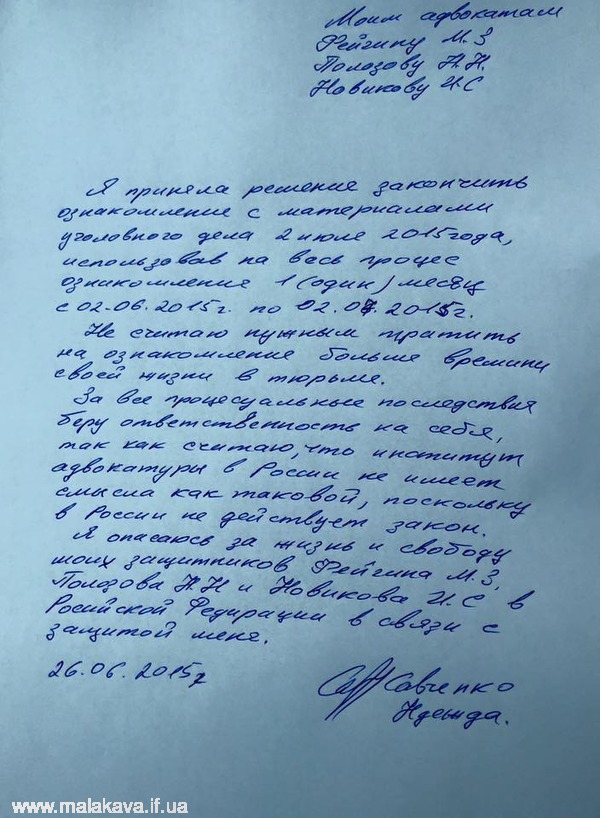 Моим адвокатам
Фейгину М.З
Полозову Н.Н.
Новикову И.С
Я приняла решение закончить
ознакомление с материалами
уголовного дела 2 июле 2015 года,
использовав на весь процес
ознакомление 1 (один) месяц
с 02.06.2015г. по 02.07.2015г.
Не считаю нужным тратить
на ознакомление больше времини
своей жизни в тюрьме.
За все процесуальные последствия
беру ответственность на себя,
так как считаю, что институт
адвокатуры в России не имеет
смысла как таковой, поскольку
в России не действует закон.
Я опасаюсь за жизнь и свободу
моих защитников Фейгина М.З,
Полозова Н.Н и Новикова И.С в
Росийской Федирации в связи с
защитой меня.
26.06.2015г
Савченко
Надежда.
www.malakava.if.ua